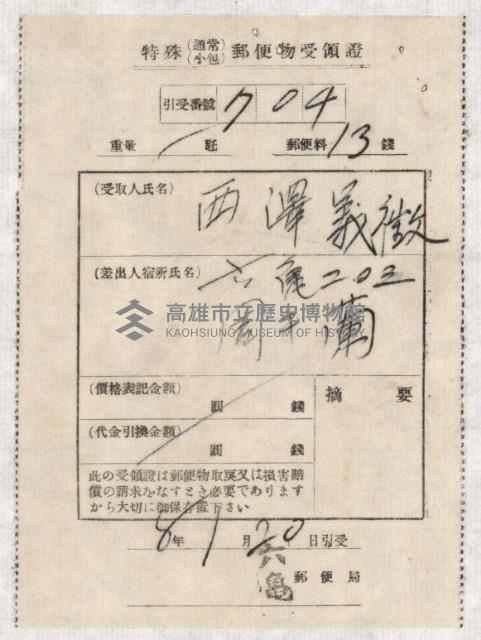 特殊(通常小包)郵便物受領證
引受番號 704
重量 瓩 郵便料 13 錢
(受取人氏名) 西澤義徵
(差出人宿所氏名) 六亀二〇三
周 蘭
高雄市立歷史博物館
KAOHSIUNG MUSEUM OF HISTORY
(價格表記金額) 圓 錢
摘要
(代金引換金額) 圓 錢
此の受領證は郵便物取戾又は損害賠
償の請求をなすとき必要であります
から大切に御保存置下さい
8年1月20日引受
六亀郵便局